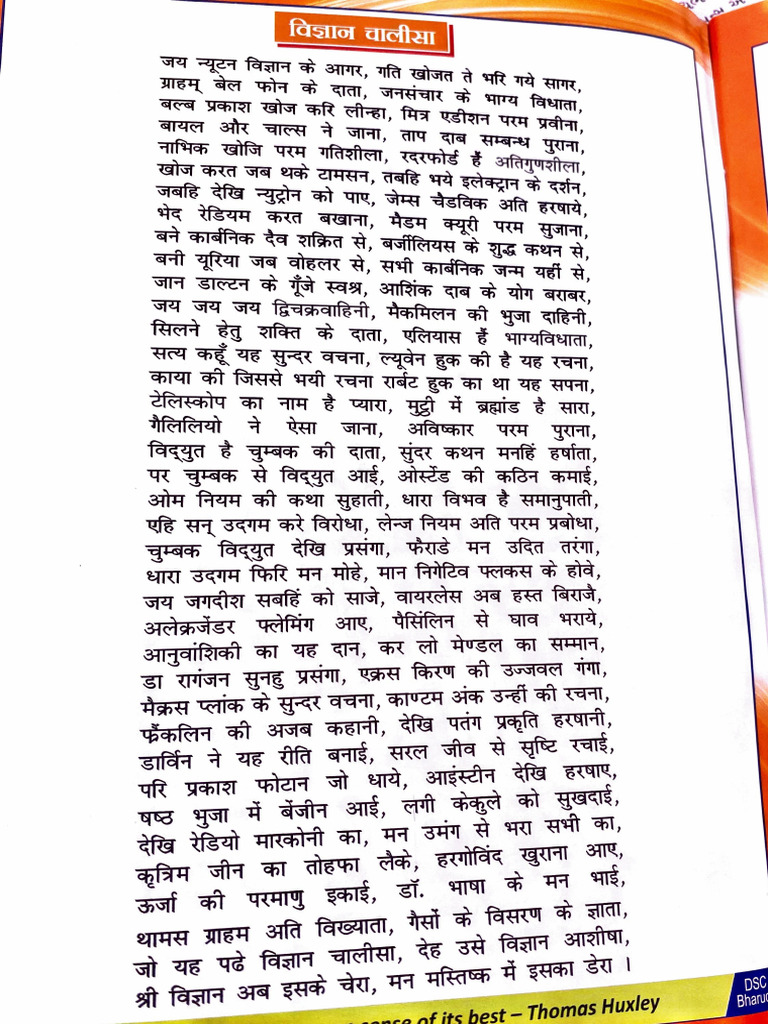 विज्ञान चालीसा
जय न्यूटन विज्ञान के आगर, गति खोजत ते भरि गये सागर,
ग्राहम् बेल फोन के दाता, जनसंचार के भाग्य विधाता,
बल्ब प्रकाश खोज करि लीन्हा, मित्र एडीशन परम प्रवीना,
बायल और चाल्स ने जाना, ताप दाब सम्बन्ध पुराना,
नाभिक खोजि परम गतिशीला, रदरफोर्ड हैं अतिगुणशीला,
खोज करत जब थके टामसन, तबहि भये इलेक्ट्रान के दर्शन,
जबहि देखि न्युट्रोन को पाए, जेम्स चैडविक अति हरषाये,
भेद रेडियम करत बखाना, मैडम क्यूरी परम सुजाना,
बने कार्बनिक दैव शक्रित से, बर्जीलियस के शुद्ध कथन से,
बनी यूरिया जब वोहलर से, सभी कार्बनिक जन्म यहीं से,
जान डाल्टन के गूँजे स्वश्र, आशिंक दाब के योग बराबर,
जय जय जय द्विचक्रवाहिनी, मैकमिलन की भुजा दाहिनी,
सिलने हेतु शक्ति के दाता, एलियास हैं भाग्यविधाता,
सत्य कहूँ यह सुन्दर वचना, ल्यूवेन हुक की है यह रचना,
काया की जिससे भयी रचना रार्बट हुक का था यह सपना,
टेलिस्कोप का नाम है प्यारा, मुट्ठी में ब्रह्मांड है सारा,
गैलिलियो ने ऐसा जाना, अविष्कार परम पुराना,
विद्युत है चुम्बक की दाता, सुंदर कथन मनहिं हर्षाता,
पर चुम्बक से विद्युत आई, ओर्स्टेड की कठिन कमाई,
ओम नियम की कथा सुहाती, धारा विभव है समानुपाती,
एहि सन् उदगम करे विरोधा, लेन्ज नियम अति परम प्रबोधा,
चुम्बक विद्युत देखि प्रसंगा, फैराडे मन उदित तरंगा,
धारा उदगम फिरि मन मोहे, मान निगेटिव फ्लकस के होवे,
जय जगदीश सबहिं को साजे, वायरलेस अब हस्त बिराजै,
अलेक्रजेंडर फ्लेमिंग आए, पैसिंलिन से घाव भराये,
आनुवांशिकी का यह दान, कर लो मेण्डल का सम्मान,
डा रागंजन सुनहु प्रसंगा, एक्रस किरण की उज्जवल गंगा,
मैक्रस प्लांक के सुन्दर वचना, काण्टम अंक उन्हीं की रचना,
फ्रैंकलिन की अजब कहानी, देखि पतंग प्रकृति हरषानी,
डार्विन ने यह रीति बनाई, सरल जीव से सृष्टि रचाई,
परि प्रकाश फोटान जो धाये, आइंस्टीन देखि हरषाए,
षष्ठ भुजा में बेंजीन आई, लगी केकुले को सुखदाई,
देखि रेडियो मारकोनी का, मन उमंग से भरा सभी का,
कृत्रिम जीन का तोहफा लैके, हरगोविंद खुराना आए,
ऊर्जा की परमाणु इकाई, डॉ. भाषा के मन भाई,
थामस ग्राहम अति विख्याता, गैसों के विसरण के ज्ञाता,
जो यह पढे विज्ञान चालीसा, देह उसे विज्ञान आशीषा,
श्री विज्ञान अब इसके चेरा, मन मस्तिष्क में इसका डेरा ।
sense of its best – Thomas Huxley
DSC